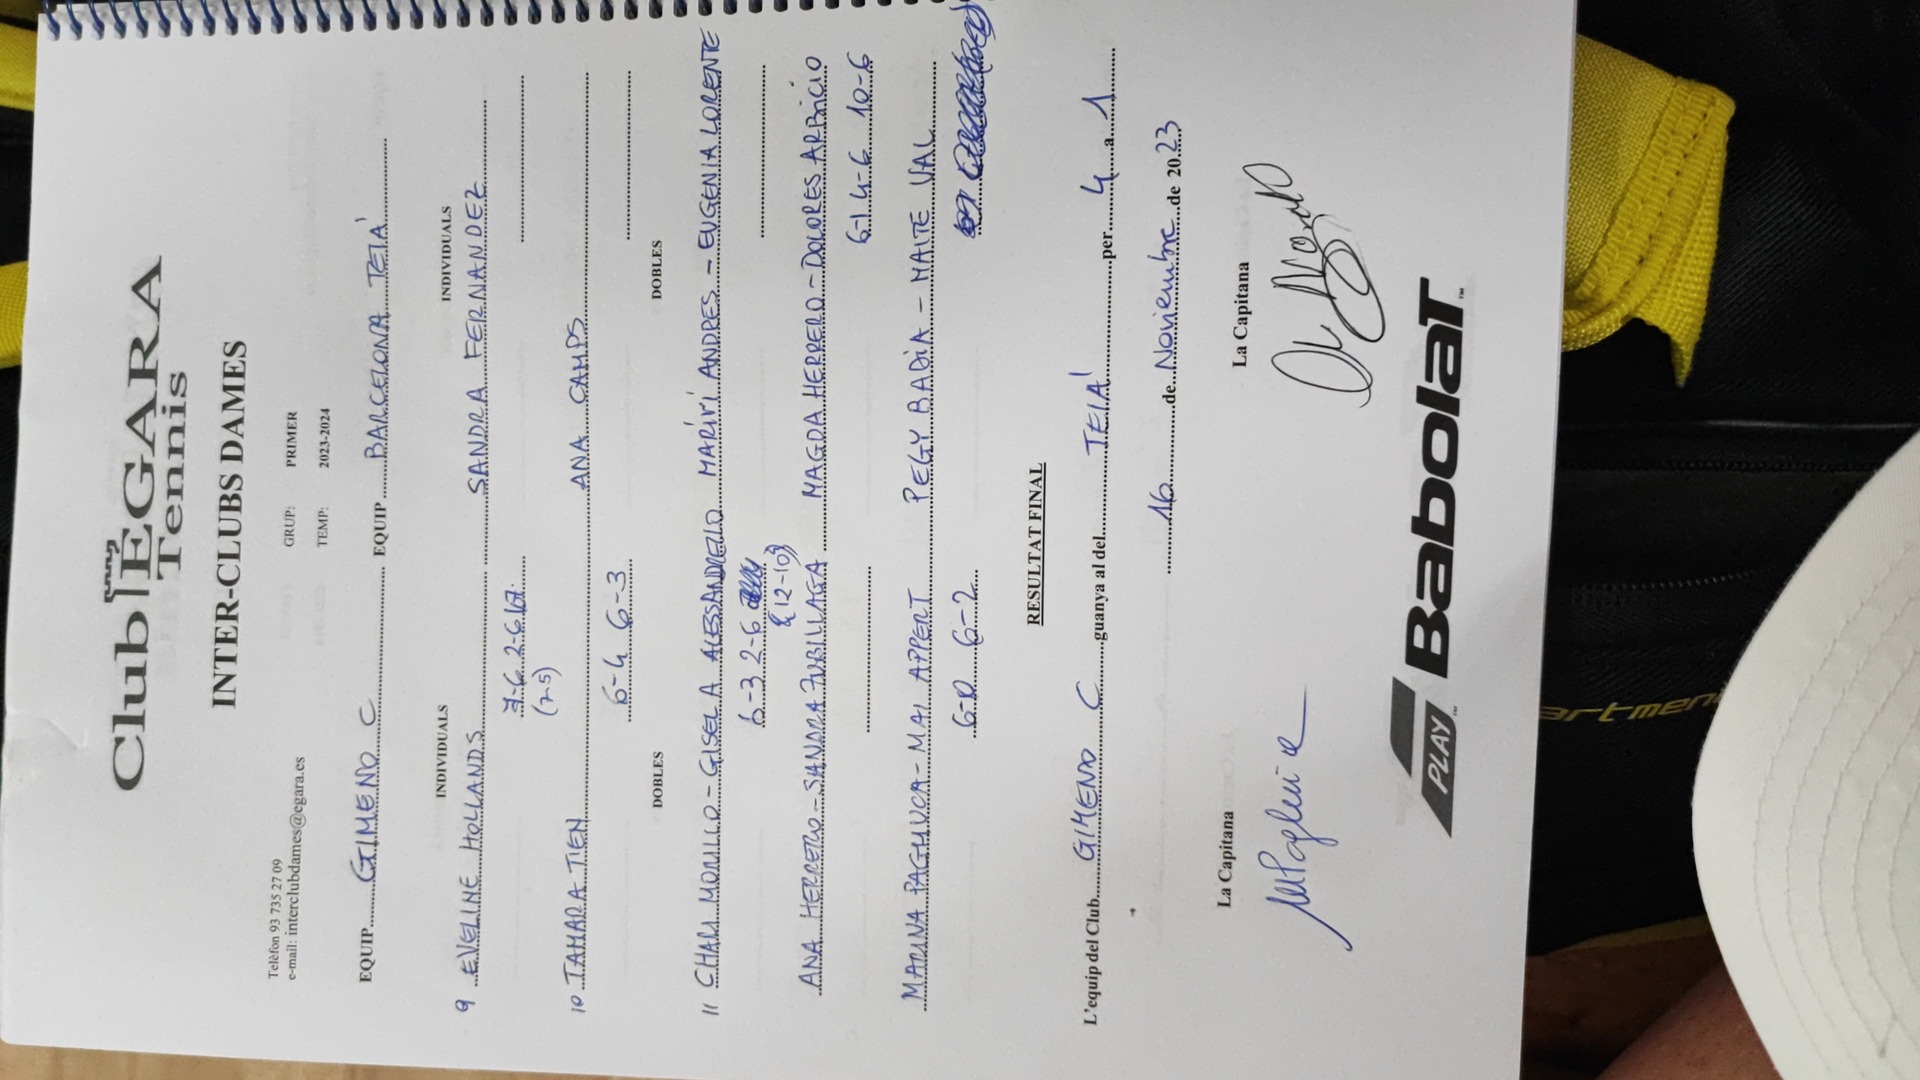 Club EGARA
Tennis
INTER-CLUBS DAMES
Telèfon 93 735 27 09 GRUP: PRIMER
e-mail: interclubdames@egara.es TEMP: 2023-2024
EQUIP GIMENO C EQUIP BARCELONA TEIÁ
INDIVIDUALS INDIVIDUALS
9 EVELINE HOLLANDS SANDRA FERNANDEZ
7-6 2-6
(7-5)
10 TAMARA TIEN ANA CAMPS
6-4 6-3
DOBLES DOBLES
11 CHARI MORILLO - GISELA ALESSANDRELLO MARIVÍ ANDRES - EUGENIA LORENTE
6-3 2-6
(12-10)
ANA HERRERO - SANDRA ZUBILLAGA MAGDA HERRERO - DOLORES ARBICIO
6-1 4-6 10-6
MARINA PAGLIUCA - MAI APPERT PEGY BADÍA - MAITE VAL
6-0 6-2
RESULTAT FINAL
L'equip del Club GIMENO C guanya al del TEIÁ per 4 a 1
16 de Noviembre de 2023
La Capitana La Capitana
PLAY BabolaT
artmen